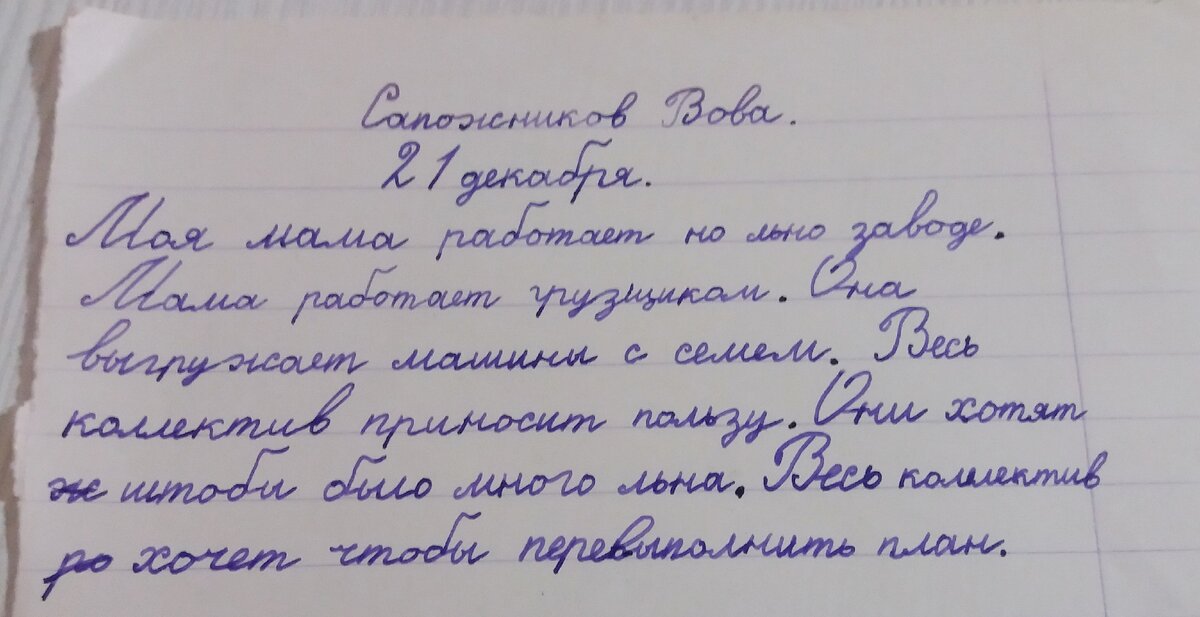 Сапожников Вова.
21 декабря.
Моя мама работает но льно заводе.
Мама работает грузщиком. Она
выгружает машины с семем. Весь
коллектив приносит пользу. Они хотят
ж штоби было много льна. Весь коллектив
ро хочет чтобы перевыполнить план.